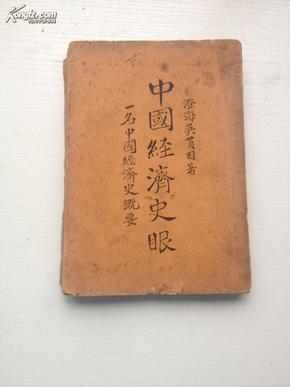 澄海吳貫因著
中國經濟史眼
一名中國經濟史概要
Kongfz.com
孔夫子旧书网